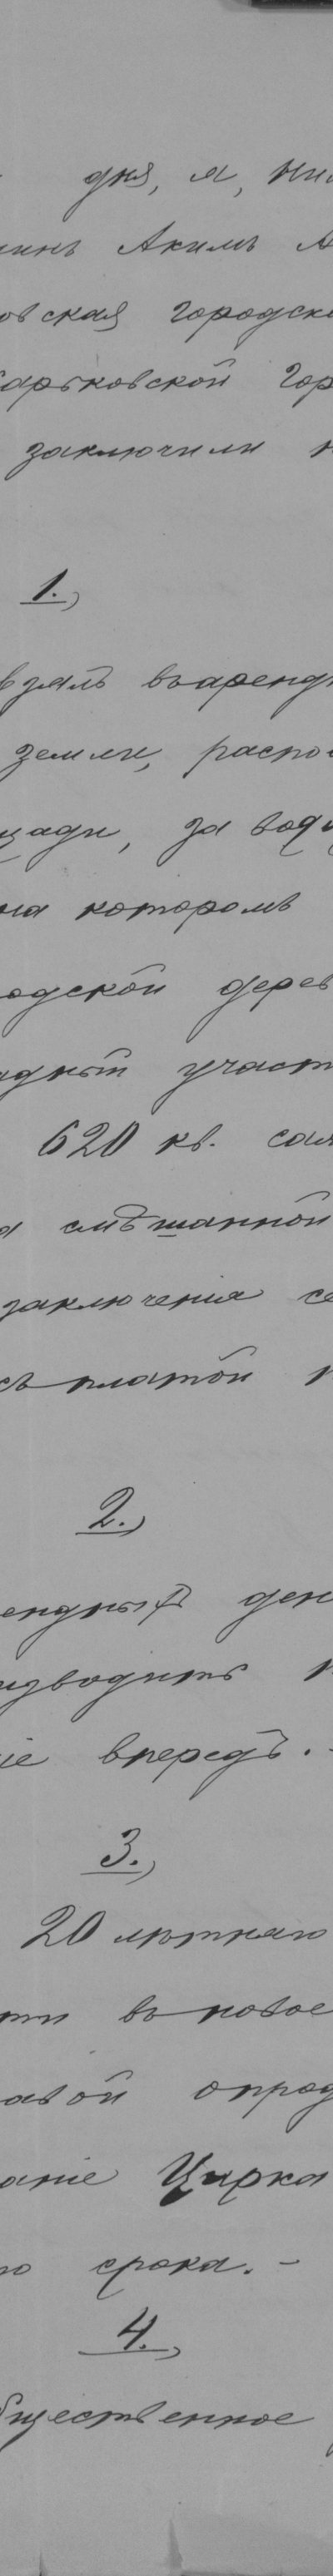 дня, я,
инъ Акимъ А
овская городск
арьковской Гор
заключили н
1.)
взялъ въ аренд
земли, распо
щади, за
на которомъ
одской дерев
адный участ
620 кв. саж
смѣшанной
заключенія се
съ платой п
2.)
ендныя ден
изводить п
іе впередъ. -
3.)
20 лѣтняго
ти въ новое
авой опред
аніе Цирка
го срока. -
4.)
бщественное